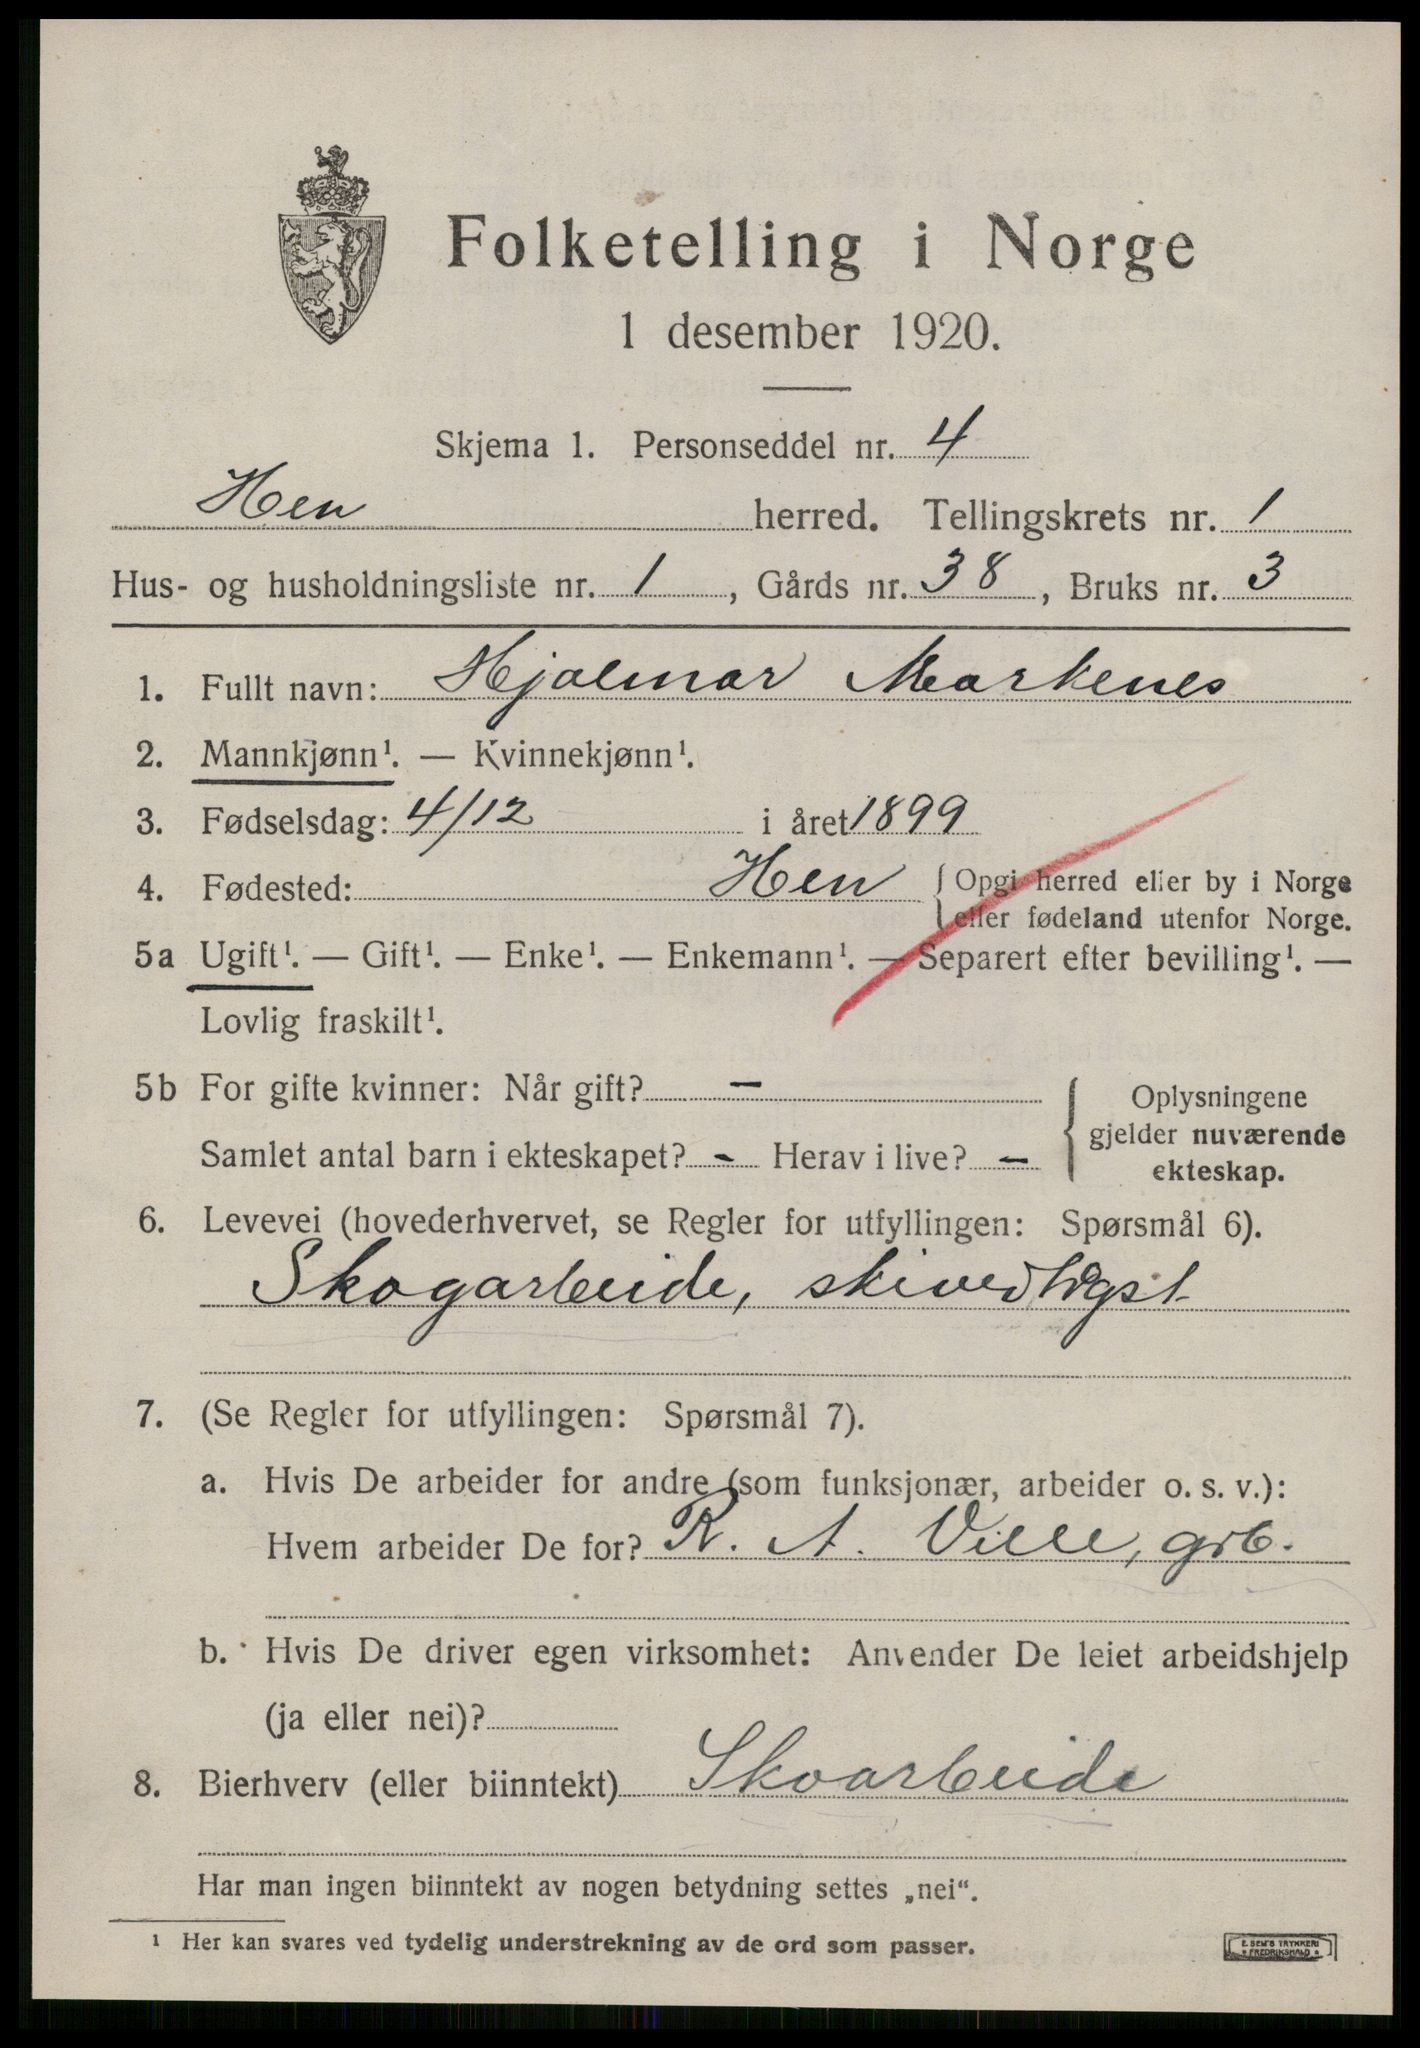 Folketelling i Norge
1 desember 1920.
Skjema 1. Personseddel nr. 4
Hen herred. Tellingskrets nr. 1
Hus- og husholdningsliste nr. 1, Gårds nr. 38, Bruks nr. 3
1. Fullt navn: Hjalmar Markenes
2. Mannkjønn¹. — Kvinnekjønn¹.
3. Fødselsdag: 4/12 i året 1899
4. Fødested: Hen { Opgi herred eller by i Norge
eller fødeland utenfor Norge.
5a Ugift¹. — Gift¹. — Enke¹. — Enkemann¹. — Separert efter bevilling¹. —
Lovlig fraskilt¹.
5b For gifte kvinner: Når gift? —
Samlet antal barn i ekteskapet? - Herav i live? —
{ Oplysningene
gjelder nuværende
ekteskap.
6. Levevei (hovederhvervet, se Regler for utfyllingen: Spørsmål 6).
Skogarbeide, skivedhgst
7. (Se Regler for utfyllingen: Spørsmål 7).
a. Hvis De arbeider for andre (som funksjonær, arbeider o. s. v.):
Hvem arbeider De for? R. A. Ville, grb.
b. Hvis De driver egen virksomhet: Anvender De leiet arbeidshjelp
(ja eller nei)?
8. Bierhverv (eller biinntekt) Skoarbeide
Har man ingen biinntekt av nogen betydning settes „nei“.
¹ Her kan svares ved tydelig understrekning av de ord som passer.
E. SEM'S TRYKKERI
FREDRIKSHALD